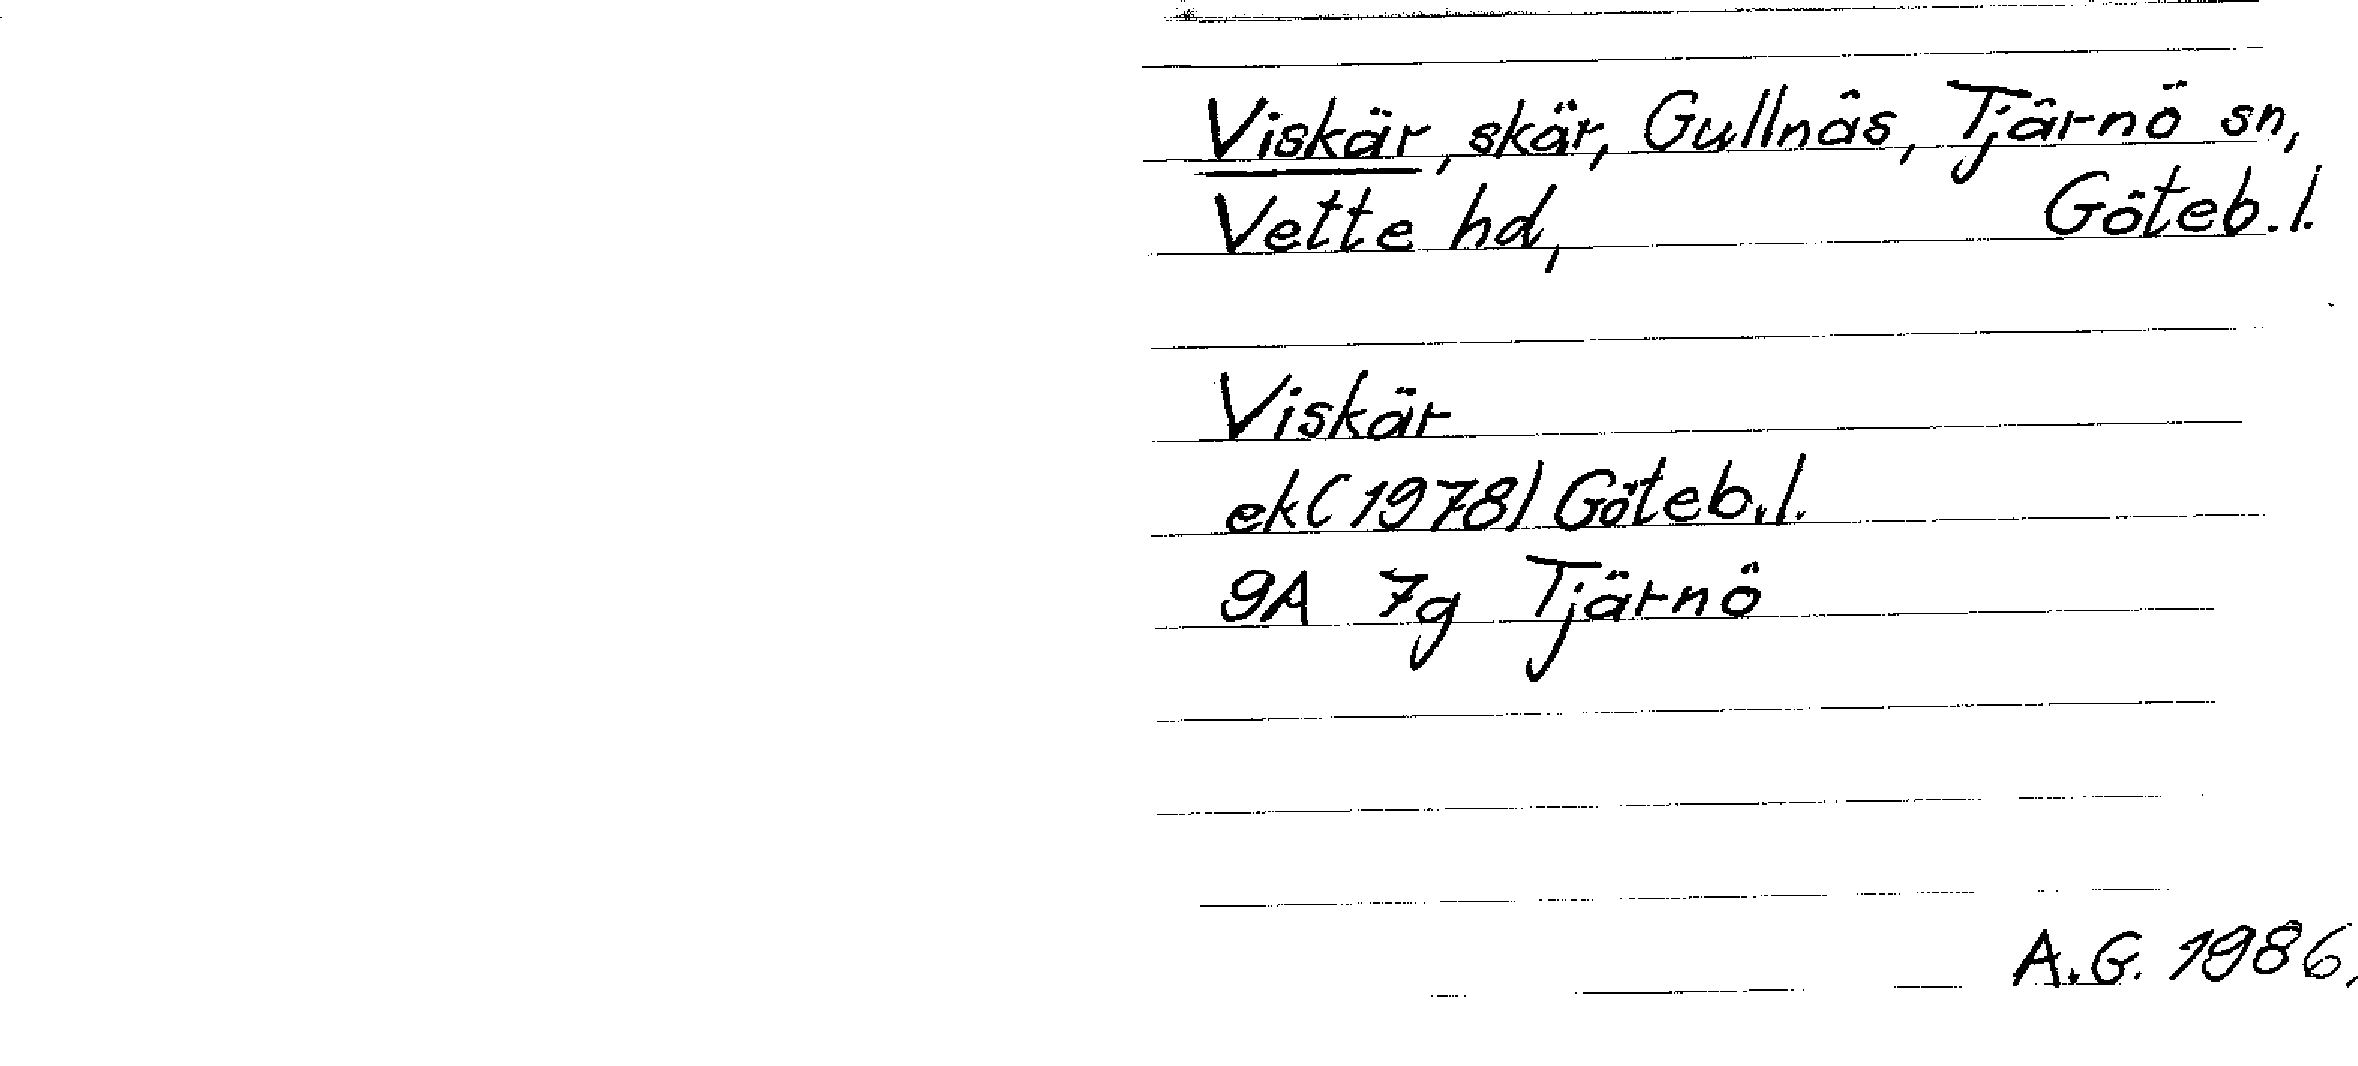 Viskär, skär, Gullnäs, Tjärnö sn,
Vette hd, Göteb.l.
Viskär
ek (1978) Göteb.l.
9A 7g Tjärnö
A.G. 1986.